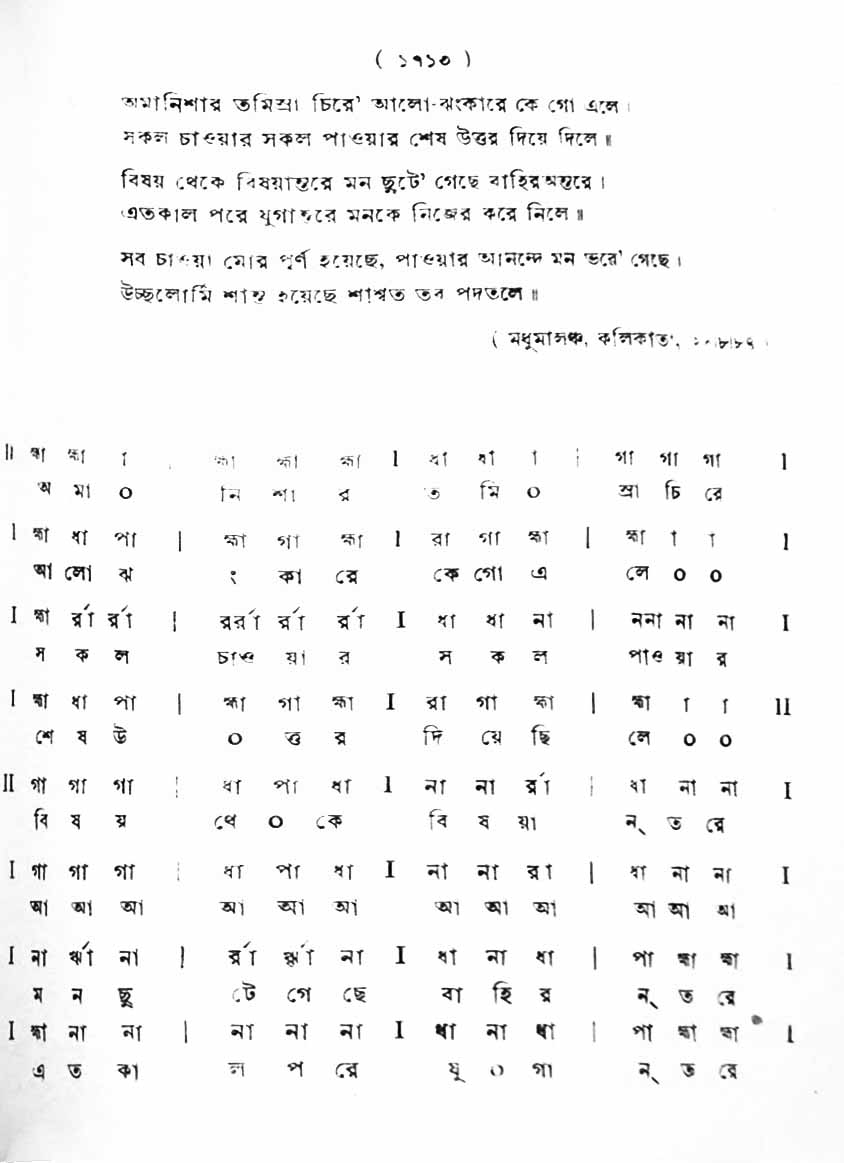 ( ১৭১৩ )
অমানিশার তমিস্রা চিরে' আলো-ঝংকারে কে গো এলে।
সকল চাওয়ার সকল পাওয়ার শেষ উত্তর দিয়ে দিলে॥
বিষয় থেকে বিষয়ান্তরে মন ছুটে' গেছে বাহির অন্তরে।
এতকাল পরে যুগান্তরে মনকে নিজের করে নিলে॥
সব চাওয়া মোর পূর্ণ হয়েছে, পাওয়ার আনন্দে মন ভরে' গেছে।
উচ্ছলোর্মি শান্ত হয়েছে শাশ্বত তব পদতলে॥
( মধুমালঞ্চ, কলিকাতা,
II হ্মা হ্মা া | হ্মা হ্মা হ্মা I ধা ধা া | গা গা গা I
অ মা ০ নি শা র ত মি ০ স্রা চি রে
I হ্মা ধা পা | হ্মা গা হ্মা I রা গা হ্মা | হ্মা া া I
আ লো ঝ ং কা রে কে গো এ লে ০ ০
I হ্মা র্রা র্রা | র্রর্রা র্রা র্রা I ধা ধা না | ননা না না I
স ক ল চাও য়া র স ক ল পাও য়া র
I হ্মা ধা পা | হ্মা গা হ্মা I রা গা হ্মা | হ্মা া া II
শে ষ উ ০ ত্ত র দি য়ে ছি লে ০ ০
II গা গা গা | ধা পা ধা I না না র্রা | ধা না না I
বি ষ য় থে ০ কে বি ষ য়া ন্ ত রে
I গা গা গা | ধা পা ধা I না না রা | ধা না না I
আ আ আ আ আ আ আ আ আ আ আ আ
I না র্ঋা না | র্রা র্ঋা না I ধা না ধা | পা হ্মা হ্মা I
ম ন ছু টে গে ছে বা হি র ন্ ত রে
I হ্মা না না | না না না I ধা না ধা | পা হ্মা হ্মা I
এ ত কা ল প রে যু ০ গা ন্ ত রে